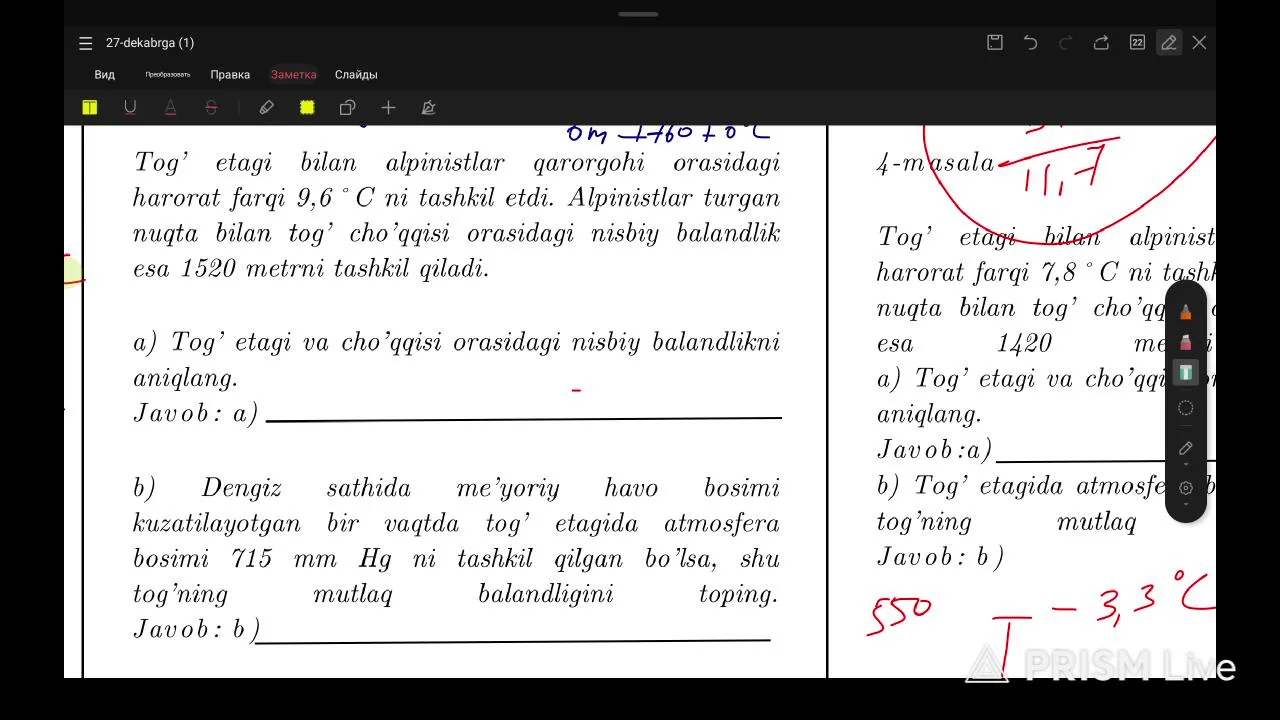 27-dekabrga (1)
22
Вид Преобразовать Правка Заметка Слайды
0m 760 0°C
Tog' etagi bilan alpinistlar qarorgohi orasidagi
harorat farqi 9,6°C ni tashkil etdi. Alpinistlar turgan
nuqta bilan tog' cho'qqisi orasidagi nisbiy balandlik
esa 1520 metrni tashkil qiladi.
a) Tog' etagi va cho'qqisi orasidagi nisbiy balandlikni
aniqlang.
Javob: a)
b) Dengiz sathida me'yoriy havo bosimi
kuzatilayotgan bir vaqtda tog' etagida atmosfera
bosimi 715 mm Hg ni tashkil qilgan bo'lsa, shu
tog'ning mutlaq balandligini toping.
Javob: b)
11,7
4-masala
Tog' etagi bilan alpinist
harorat farqi 7,8°C ni tashk
nuqta bilan tog' cho'qq
esa 1420 me
a) Tog' etagi va cho'qqi
aniqlang.
Javob:a)
b) Tog' etagida atmosfe
tog'ning mutlaq
Javob: b)
550 T - 3,3°C
PRISM Live